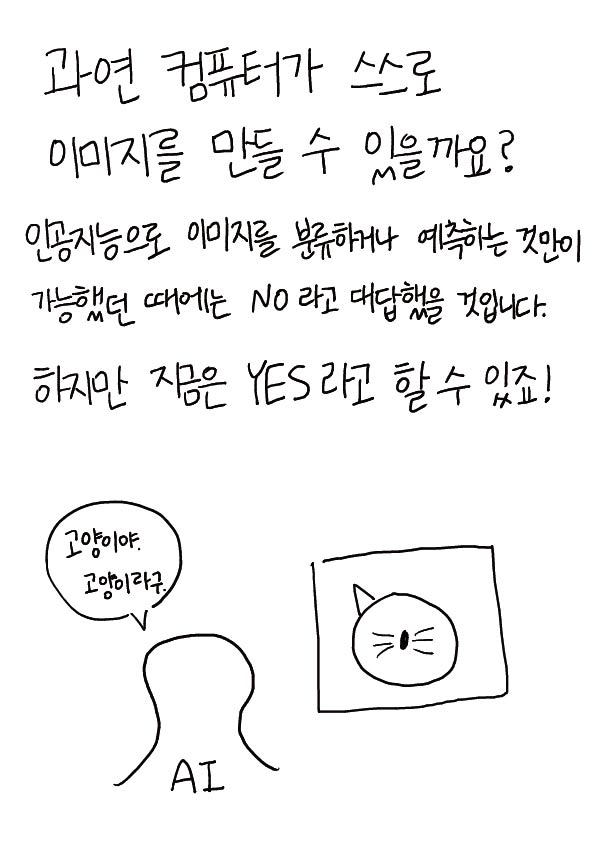 과연 컴퓨터가 스스로
이미지를 만들 수 있을까요?
인공지능으로 이미지를 분류하거나 예측하는 것만이
가능했던 때에는 NO 라고 대답했을 것입니다.
하지만 지금은 YES 라고 할 수 있죠!
고양이야.
고양이라구.
AI